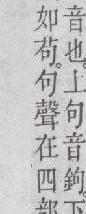 音也。上句音鉤下
如苟。句聲在四部